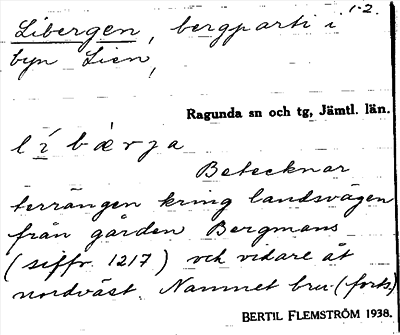 1-2.
Libergen, bergparti i
byn Lien,
Ragunda sn och tg, Jämtl. län.
lí bæ̀rja
Betecknar
terrängen kring landsvägen
från gården Bergmans
(siffr. 1217) och vidare åt
nordväst. Namnet bru- (forts.)
BERTIL FLEMSTRÖM 1938.